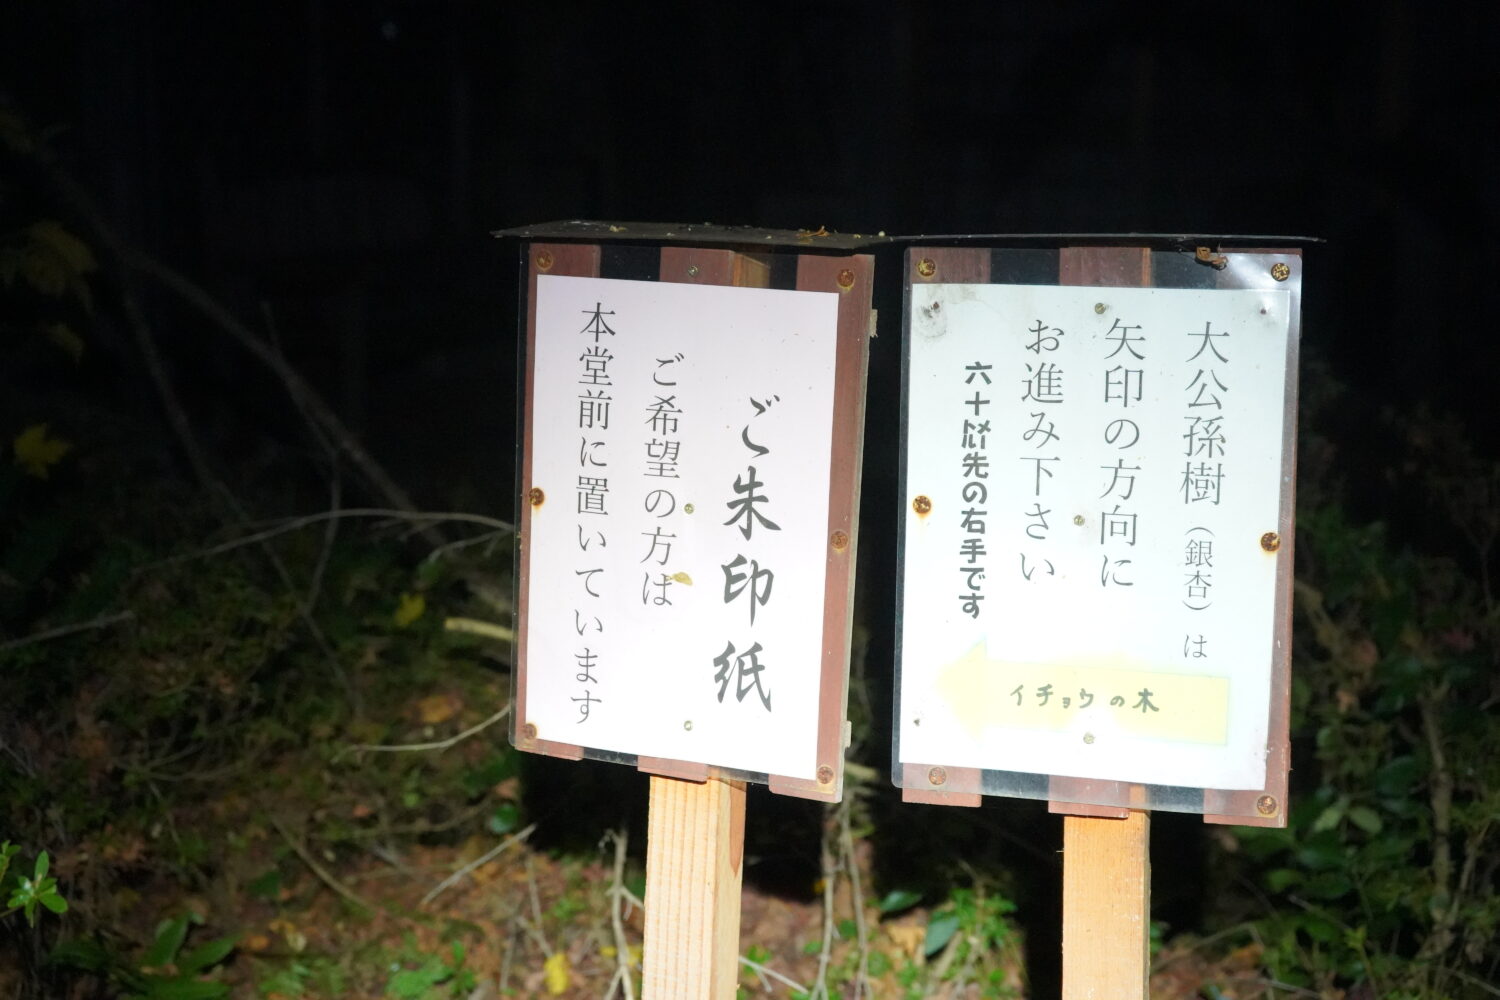 ご朱印紙
ご希望の方は
本堂前に置いています
大公孫樹（銀杏）は
矢印の方向に
お進み下さい
六十㍍先の右手です
イチョウの木